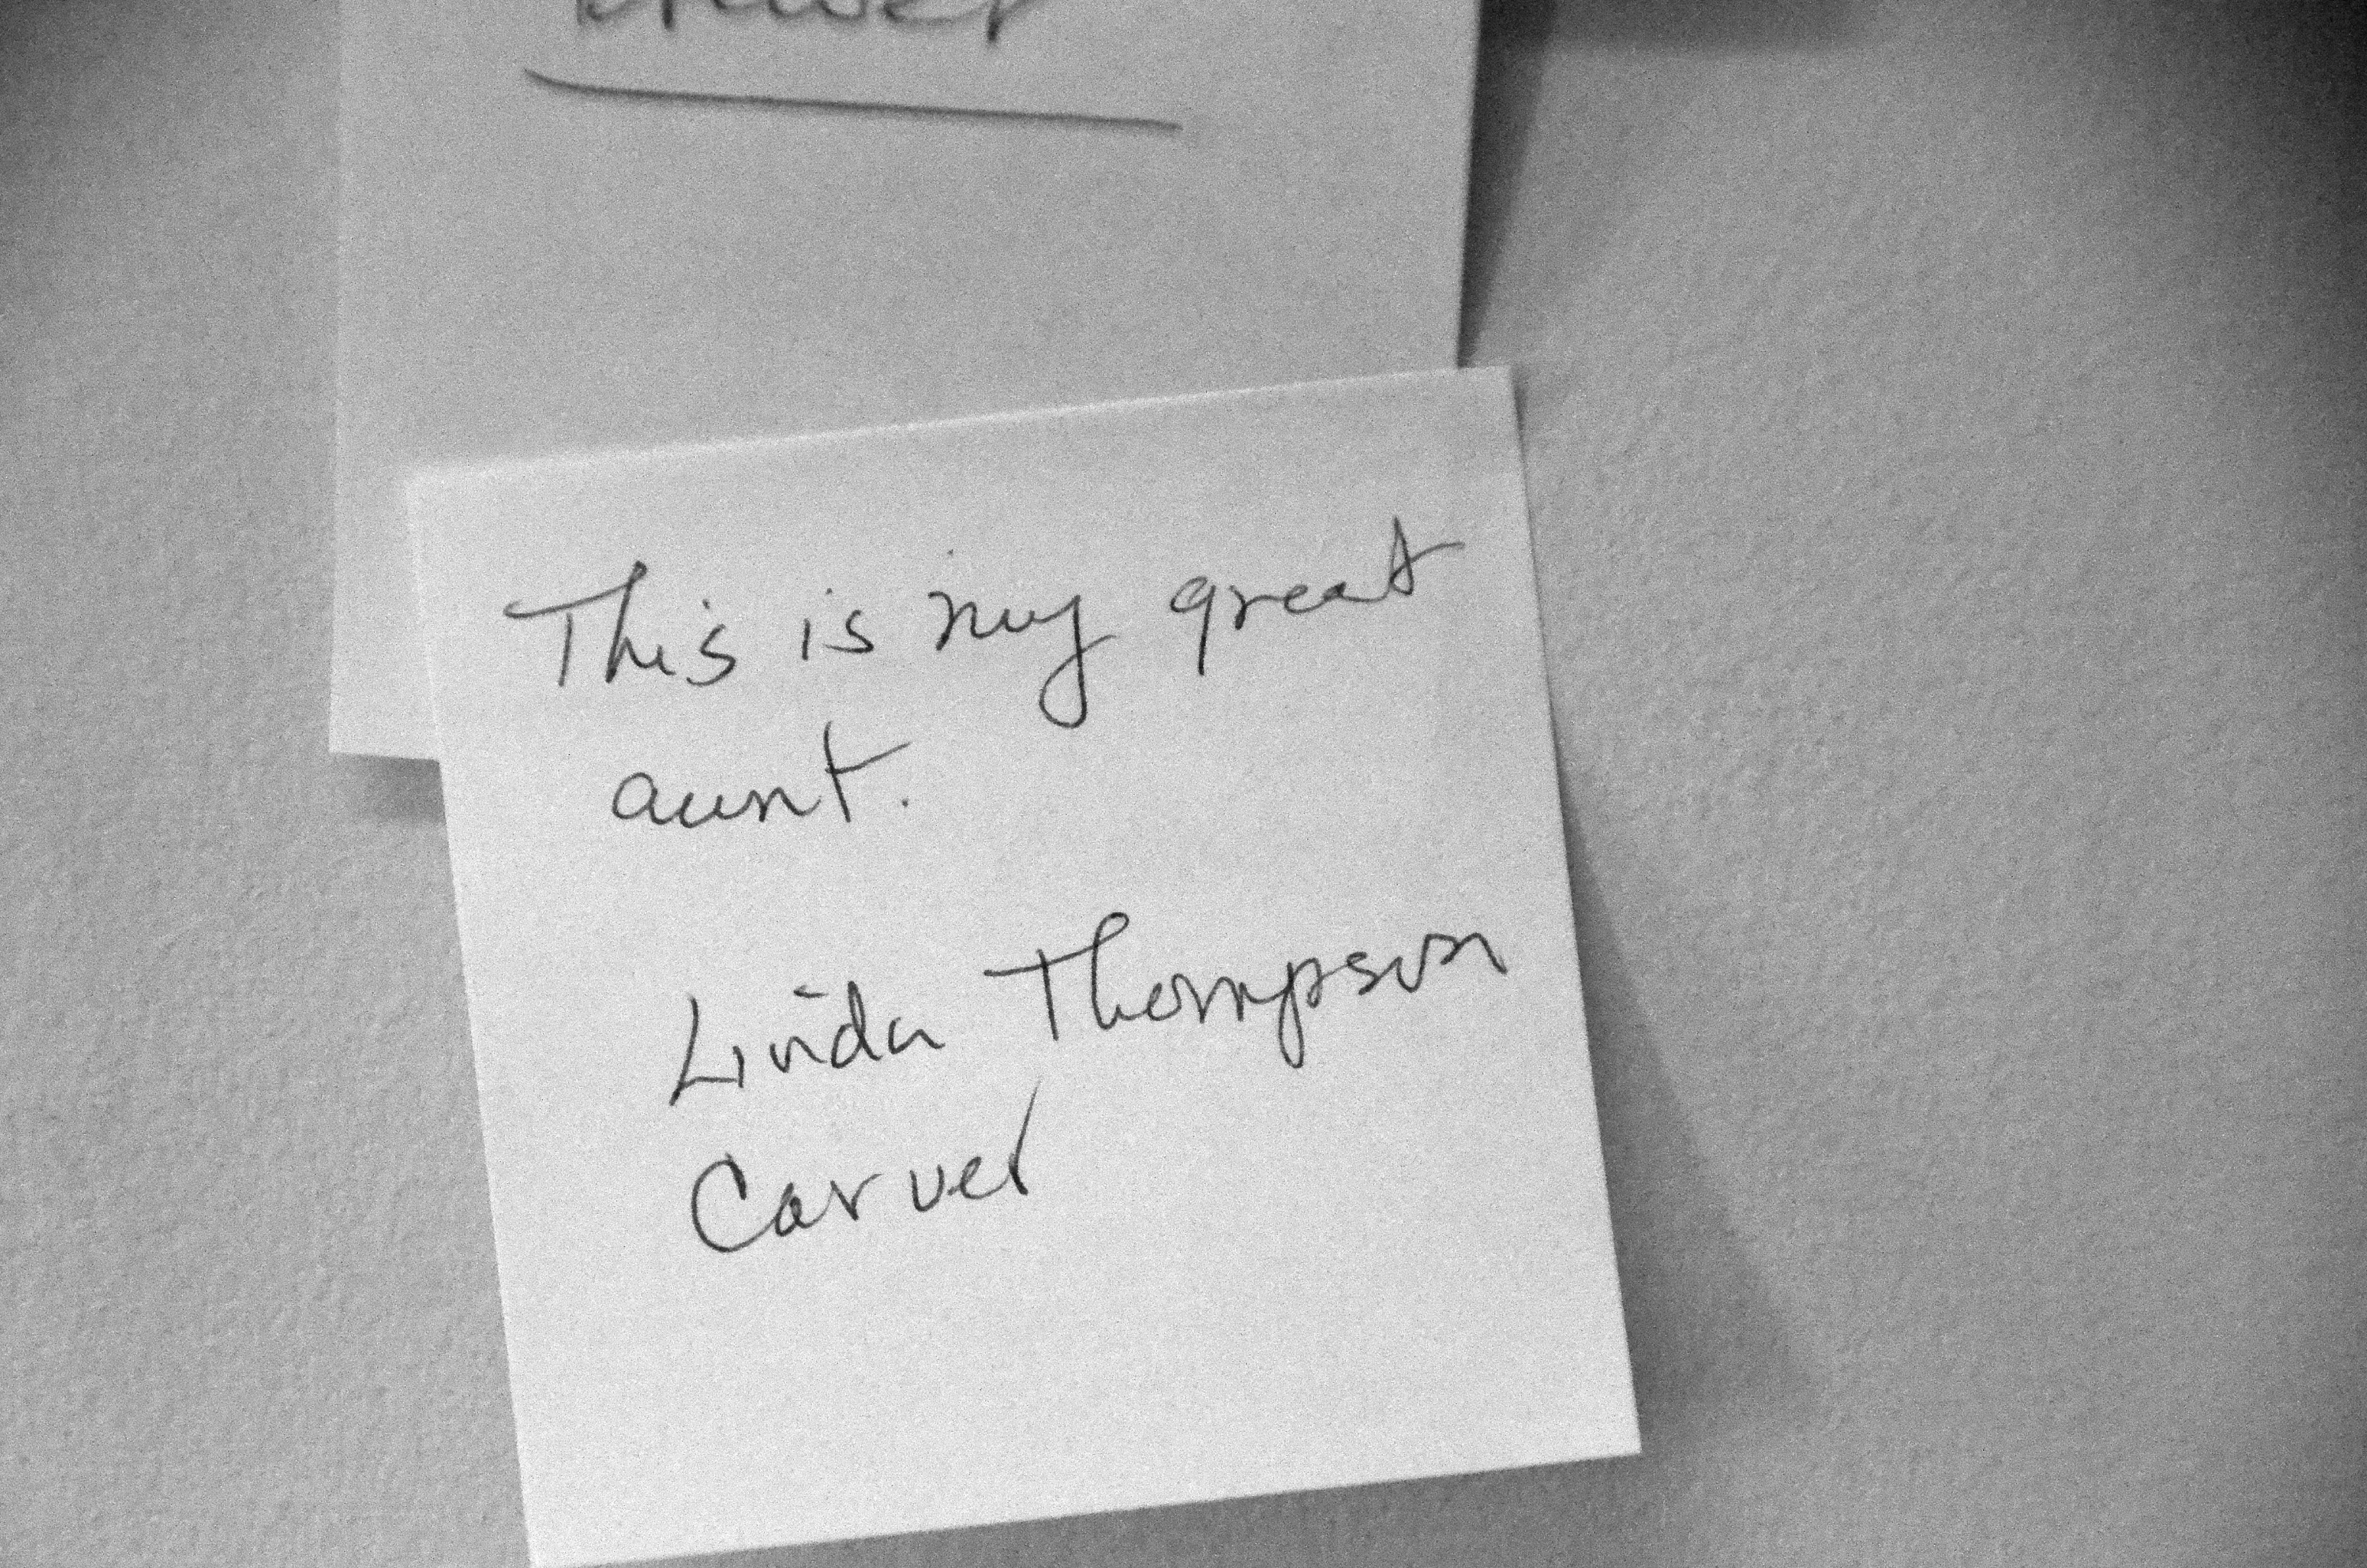 This is my great
aunt.
Linda Thompson
Carver